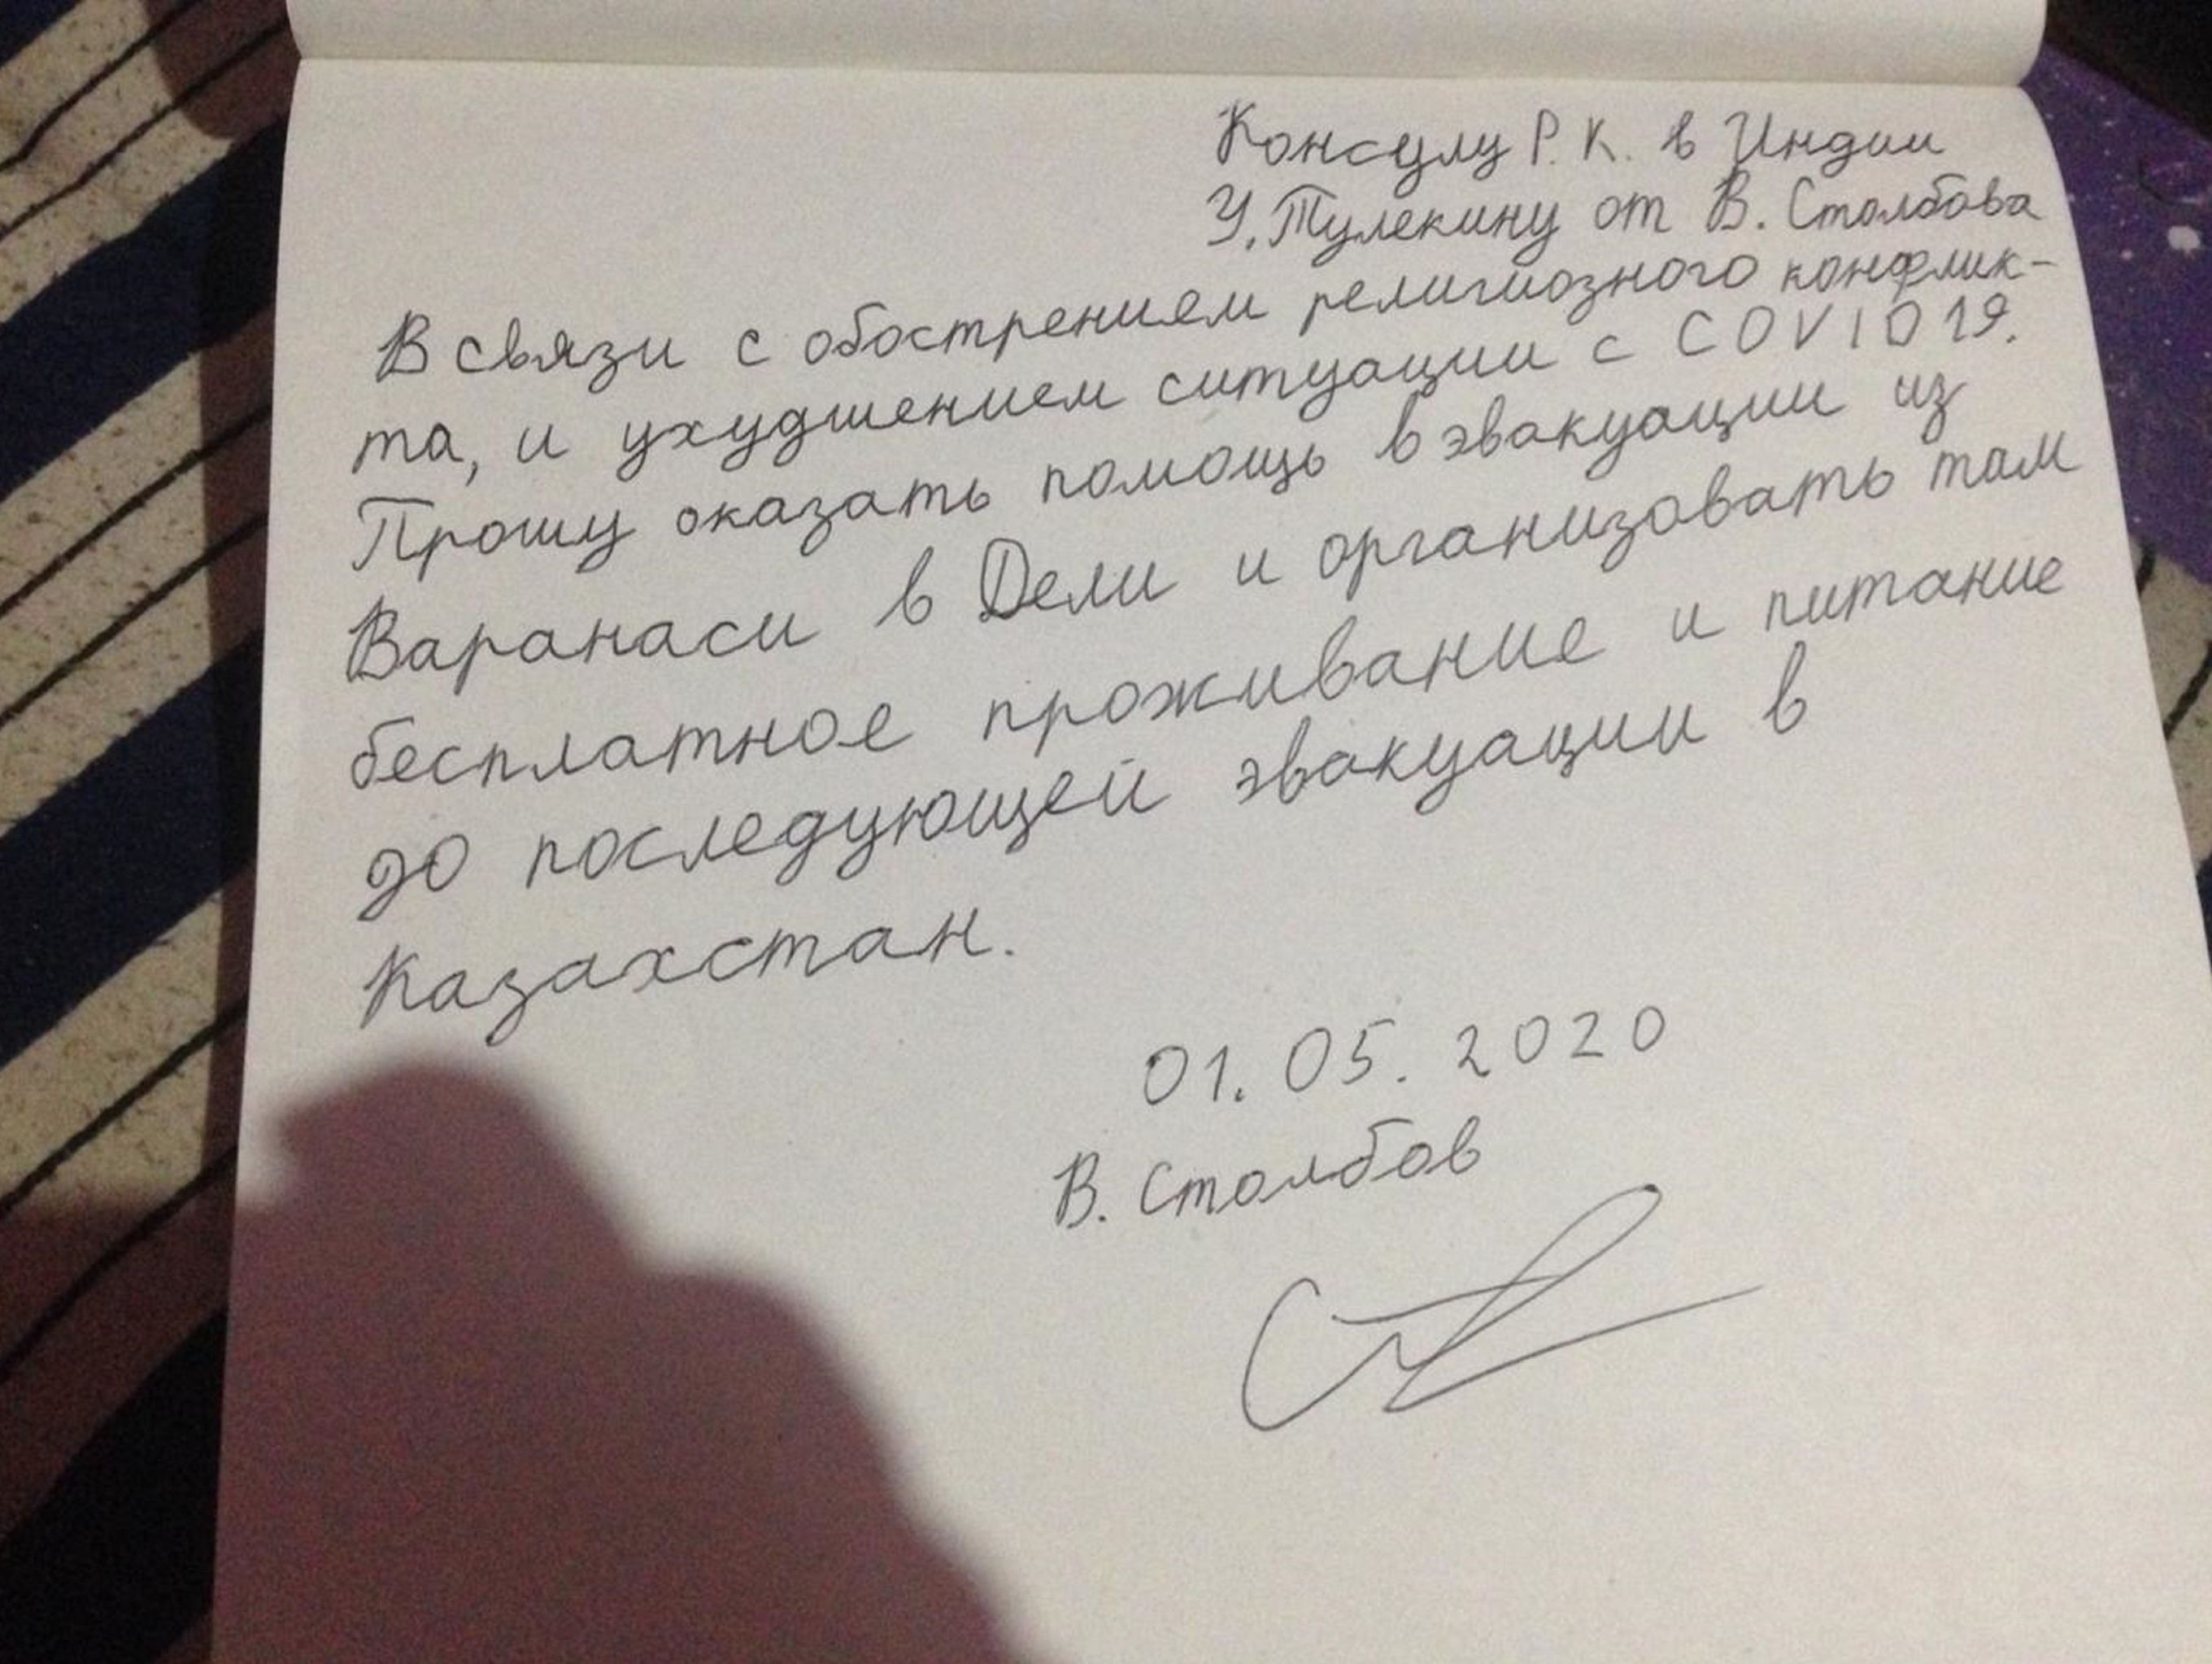 Консулу Р. К. в Индии
У. Тулекину от В. Столбова
В связи с обострением религиозного конфлик-
та, и ухудшением ситуации с COVID 19.
Прошу оказать помощь в эвакуации из
Варанаси в Дели и организовать там
бесплатное проживание и питание
до последующей эвакуации в
Казахстан.
01. 05. 2020
В. Столбов